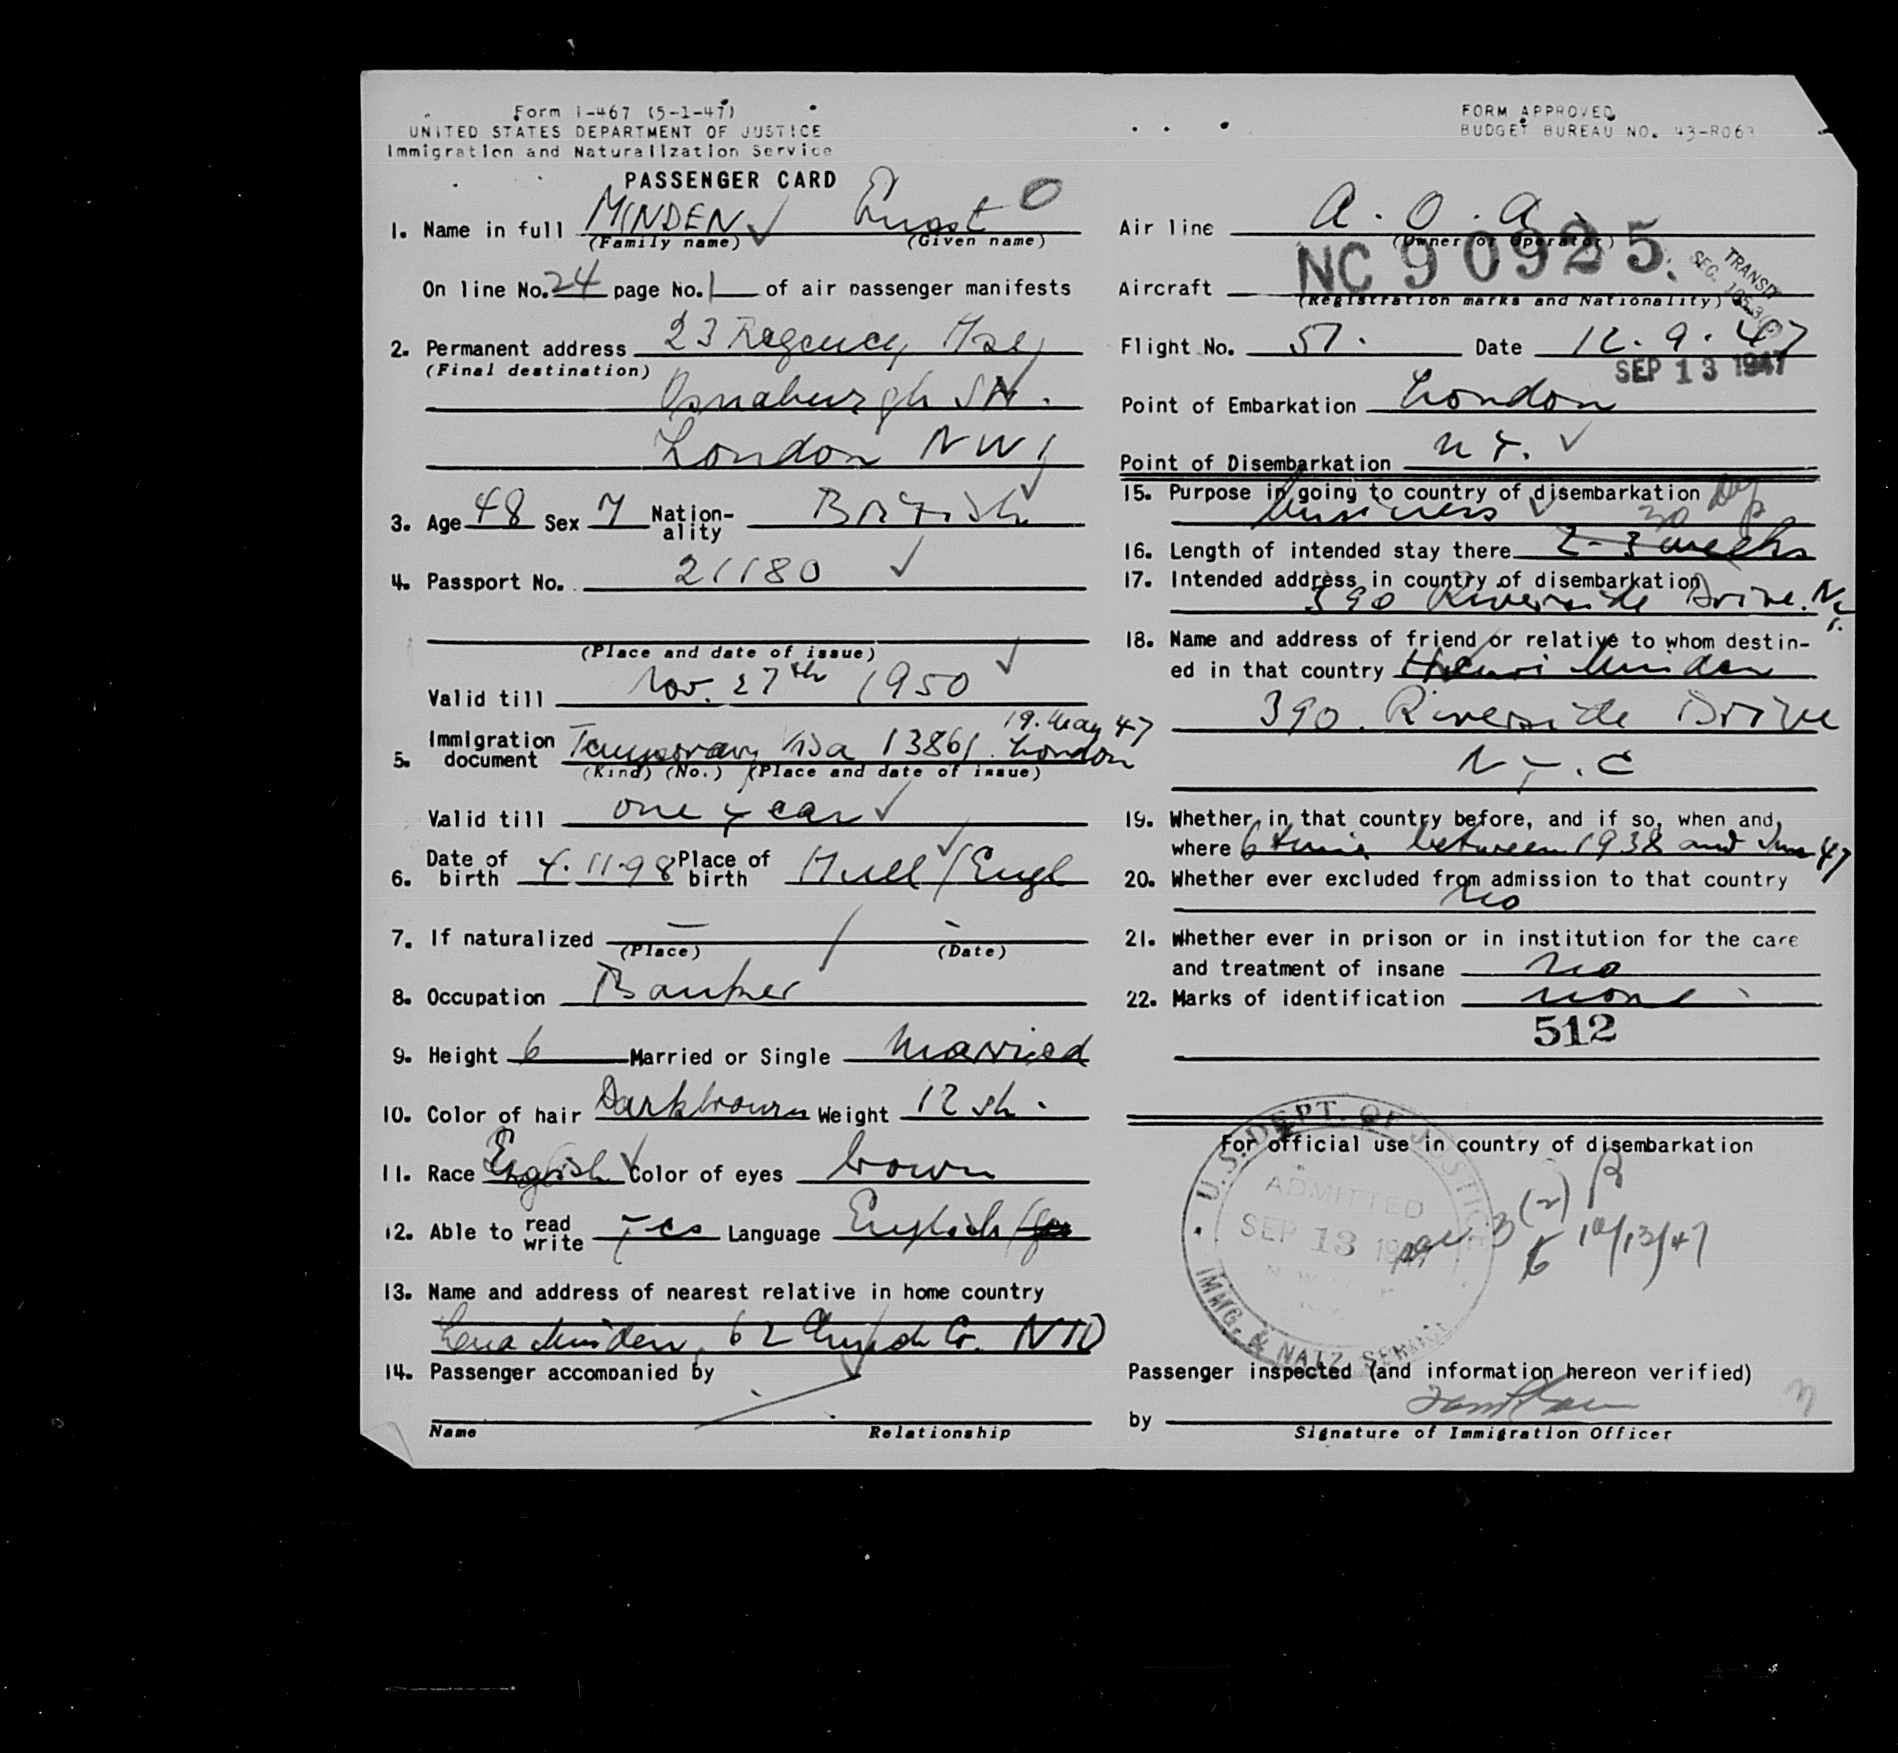 Form I-467 (5-1-47)
UNITED STATES DEPARTMENT OF JUSTICE
Immigration and Naturalization Service
PASSENGER CARD
1. Name in full MINDEN Ernst O
(Family name) (Given name)
On line No. 24 page No. 1 of air passenger manifests
2. Permanent address 23 Regency Hse
(Final destination)
Osnaburgh St.
London NW1
3. Age 48 Sex M Nation-ality British
4. Passport No. 21180
(Place and date of issue)
Valid till Nov. 27th 1950
19. May 47
5. Immigration document Temporary Visa 13861 London
(Kind) (No.) (Place and date of issue)
Valid till one year
6. Date of birth 4.11.98 Place of birth Hull/Engl
7. If naturalized — -
(Place) (Date)
8. Occupation Banker
9. Height 6 Married or Single married
10. Color of hair Darkbrown Weight 12 st.
11. Race English Color of eyes brown
12. Able to read write yes Language English
13. Name and address of nearest relative in home country
Minden, 62
14. Passenger accompanied by
Name Relationship
FORM APPROVED
BUDGET BUREAU NO. 43-R069
Air line A.O.A.
(Owner or Operator)
NC 90925
TRANSIT
Aircraft
(Registration marks and Nationality)
Flight No. 57. Date 12.9.47
SEP 13 1947
Point of Embarkation London
Point of Disembarkation N.Y.
15. Purpose in going to country of disembarkation
business
30
16. Length of intended stay there 2-3 weeks
17. Intended address in country of disembarkation
390 Riverside Drive. N.Y.
18. Name and address of friend or relative to whom destin-
ed in that country Henri Minden
390 Riverside Drive
N.Y.C
19. Whether in that country before, and if so, when and
where 6 times between 1938 and June 47
20. Whether ever excluded from admission to that country
no
21. Whether ever in prison or in institution for the care
and treatment of insane no
22. Marks of identification none
512
For official use in country of disembarkation
U.S. DEPT. OF JUSTICE
ADMITTED
SEP 13 1947
NEW YORK
IMMG. & NATZ. SERVICE
3(2)
10/12/47
Passenger inspected (and information hereon verified)
by
Signature of Immigration Officer